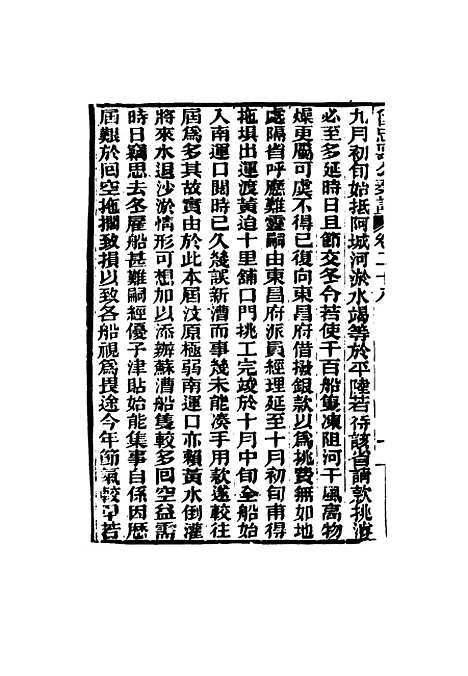 卷二十八
九月初旬始抵阿城河淤水竭等於平陸若待該省請款挑濬
必至多延時日且節交冬令若使千百船隻凍阻河干風高物
燥更屬可虞不得已復向東昌府借撥銀款以爲挑費無如地
處隔省呼應難靈嗣由東昌府派員經理延至十月初旬甫得
拖壩出運渡黃迨十里舖口門挑工完竣於十月中旬全船始
入南運口關時已久幾誤新漕而事幾未能湊手用款遂較往
屆爲多其故實由於此本屆汶原極弱南運口亦賴黃水倒灌
將來水退沙淤情形可想加以添辦蘇漕船隻較多回空益需
時日竊思去冬雇船甚難嗣經優予津貼始能集事自係因歷
屆艱於回空拖擱致損以致各船視爲畏途今年節氣較早若